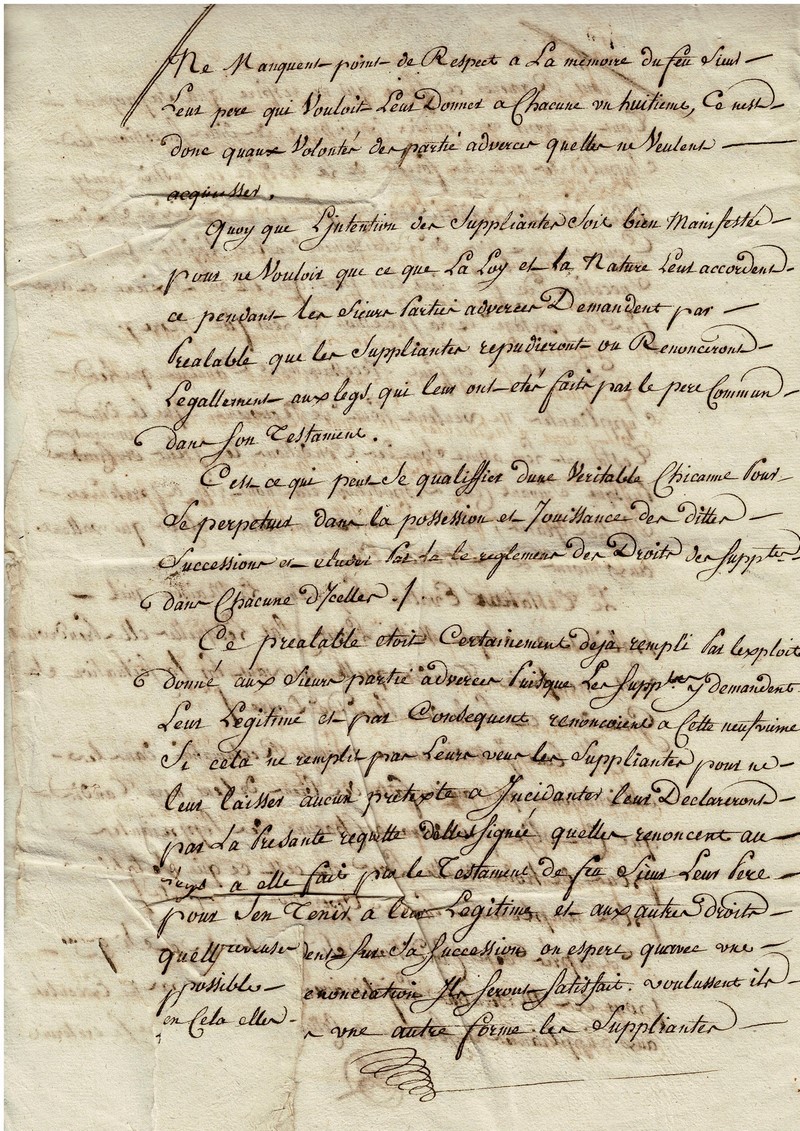 Ne Manquent point de Respect a La memoire du feu Sieur
Leur pere qui Vouloit Leur Donner a Chacune vn huitieme, Ce nest
donc quaux Volontés des partie adverces quelles ne Veulent
acquiesser.
Quoy que L'jntention des Suppliantes soit bien Manifestée
pour ne Vouloir que ce que La Loy et la Nature Leur accordent
ce pendant les Sieurs Partie adverces Demandent par
Prealable que les Suppliantes repudieront ou Renonceront
Legallement aux legs qui leur ont etés faits par le pere Commun
dans son Testament.
C'est ce qui peut se qualiffier dune Veritable Chicanne Pour
Se perpetuer dans la possession et Jouissance des dittes
Successions et eluder Par la le reglement des Droits des suppltes
dans Chacune d'Jcelles ./.
Ce prealable etoit Certainement dejà rempli Par lexploit
donné aux Sieurs partie adverces Puisque Les Suppltes y demandent
Leur Legitime et par Consequent renoncoient a Cette neufvieme
Si cela ne remplit pas Leurs veus les Suppliantes pour ne
leur laisser aucun pretexte a Jncidanter leur Declareront
par La Presante requette d'elles signée quelles renoncent au
legs a elle fait par le Testament de feu Sieur Leur Pere
pour s'en Tenir a leur Legitime et aux autres droits
quell dent sur sa succession on espere quavec vne
possible enonciation Jls seront satisfait. voulussent ils
en Cela elles vne autre forme les Suppliantes